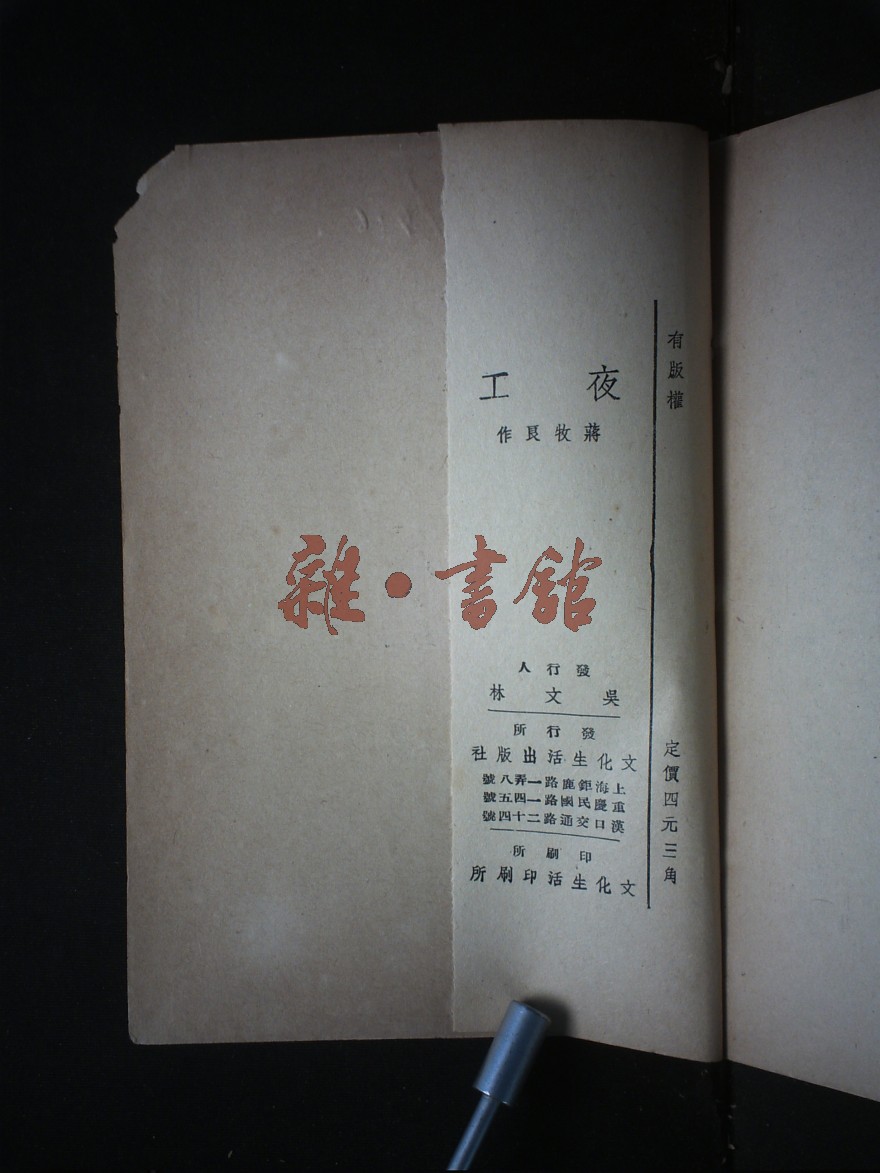 有版權
定價四元三角
夜工
蔣牧良作
發行人
吳文林
發行所
文化生活出版社
上海鉅鹿路一弄八號
重慶民國路一四五號
漢口交通路二十四號
印刷所
文化生活印刷所
雜·書館